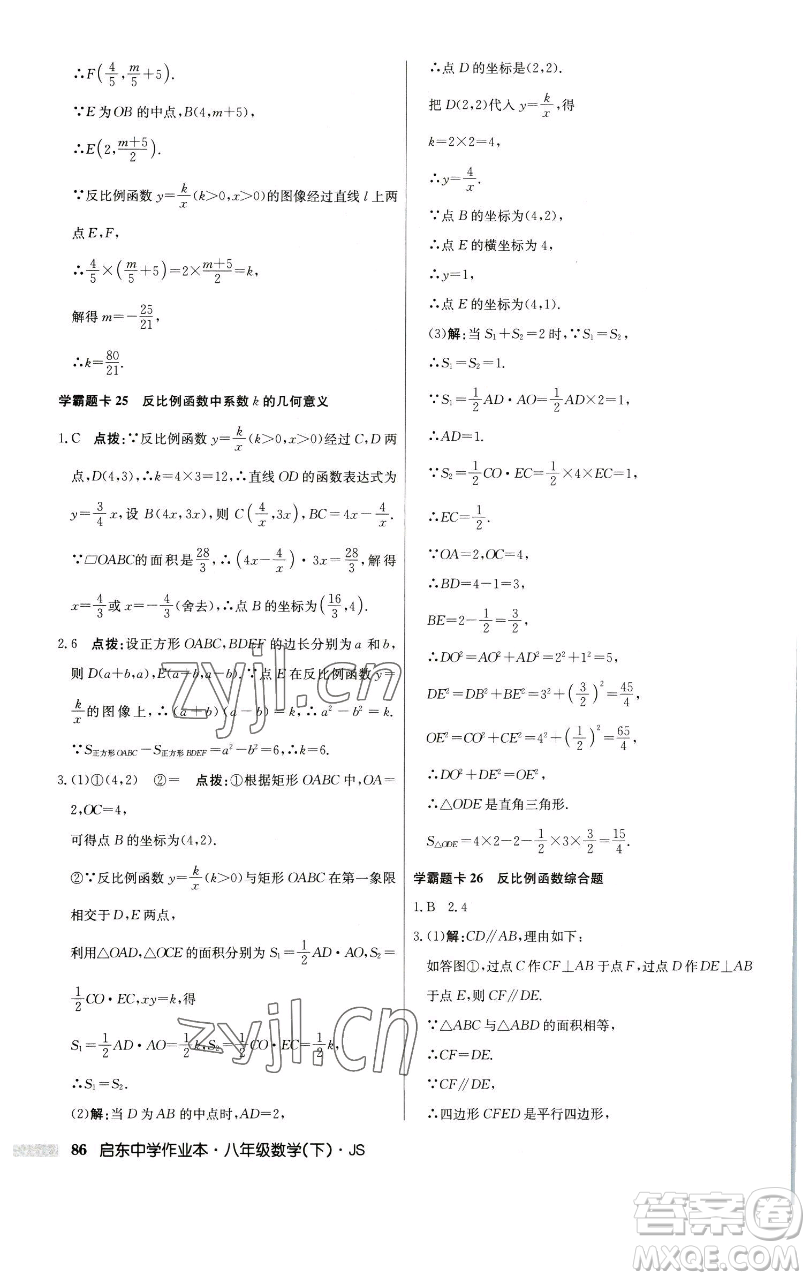 ∴F(4/5, m/5+5).
∵E为OB的中点,B(4,m+5),
∴E(2, (m+5)/2).
∵反比例函数y=k/x(k>0,x>0)的图像经过直线l上两
点E,F,
∴4/5×(m/5+5)=2×(m+5)/2=k,
解得m=-25/21,
∴k=80/21.
学霸题卡25 反比例函数中系数k的几何意义
1.C 点拨:∵反比例函数y=k/x(k>0,x>0)经过C,D两
点,D(4,3),∴k=4×3=12,∴直线OD的函数表达式为
y=3/4x,设B(4x,3x),则C(4/x,3x),BC=4x-4/x.
∵▱OABC的面积是28/3,∴(4x-4/x)·3x=28/3,解得
x=4/3或x=-4/3(舍去),∴点B的坐标为(16/3,4).
2.6 点拨:设正方形OABC,BDEF的边长分别为a和b,
则D(a+b,a),E(a+b,a-b).∵点E在反比例函数y=
k/x的图像上,∴(a+b)(a-b)=k,∴a²-b²=k.
∵S正方形OABC-S正方形BDEF=a²-b²=6,∴k=6.
3.(1)①(4,2) ②= 点拨:①根据矩形OABC中,OA=
2,OC=4,
可得点B的坐标为(4,2).
②∵反比例函数y=k/x(k>0)与矩形OABC在第一象限
相交于D,E两点,
利用△OAD,△OCE的面积分别为S₁=1/2AD·AO,S₂=
1/2CO·EC,xy=k,得
S₁=1/2AD·AO=1/2k,S₂=1/2CO·EC=1/2k,
∴S₁=S₂.
(2)解:当D为AB的中点时,AD=2,
∴点D的坐标是(2,2).
把D(2,2)代入y=k/x,得
k=2×2=4,
∴y=4/x.
∵点B的坐标为(4,2),
∴点E的横坐标为4,
∴y=1,
∴点E的坐标为(4,1).
(3)解:当S₁+S₂=2时,∵S₁=S₂,
∴S₁=S₂=1.
∵S₁=1/2AD·AO=1/2AD×2=1,
∴AD=1.
∵S₂=1/2CO·EC=1/2×4×EC=1,
∴EC=1/2.
∵OA=2,OC=4,
∴BD=4-1=3,
BE=2-1/2=3/2,
∴DO²=AO²+AD²=2²+1²=5,
DE²=DB²+BE²=3²+(3/2)²=45/4,
OE²=CO²+CE²=4²+(1/2)²=65/4,
∴DO²+DE²=OE²,
∴△ODE是直角三角形.
S△ODE=4×2-2-1/2×3×3/2=15/4.
学霸题卡26 反比例函数综合题
1.B 2.4
3.(1)解:CD∥AB,理由如下:
如答图①,过点C作CF⊥AB于点F,过点D作DE⊥AB
于点E,则CF∥DE.
∵△ABC与△ABD的面积相等,
∴CF=DE.
∴四边形CFED是平行四边形,
86 启东中学作业本·八年级数学(下)·JS
zyjl.cn
zyjl.cn
答案圈
MXQE.COM